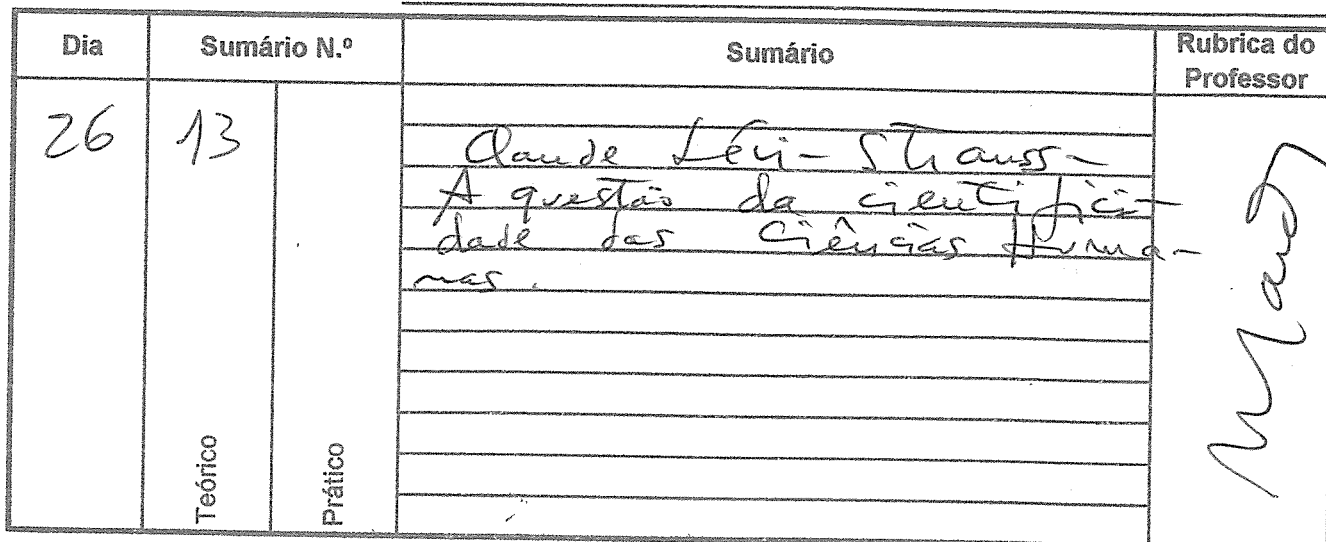 Dia Sumário N.º Sumário Rubrica do
Professor
26 13
Claude Lévi-Strauss -
A questão da cientifici-
dade das Ciências Huma-
nas.
Teórico Prático